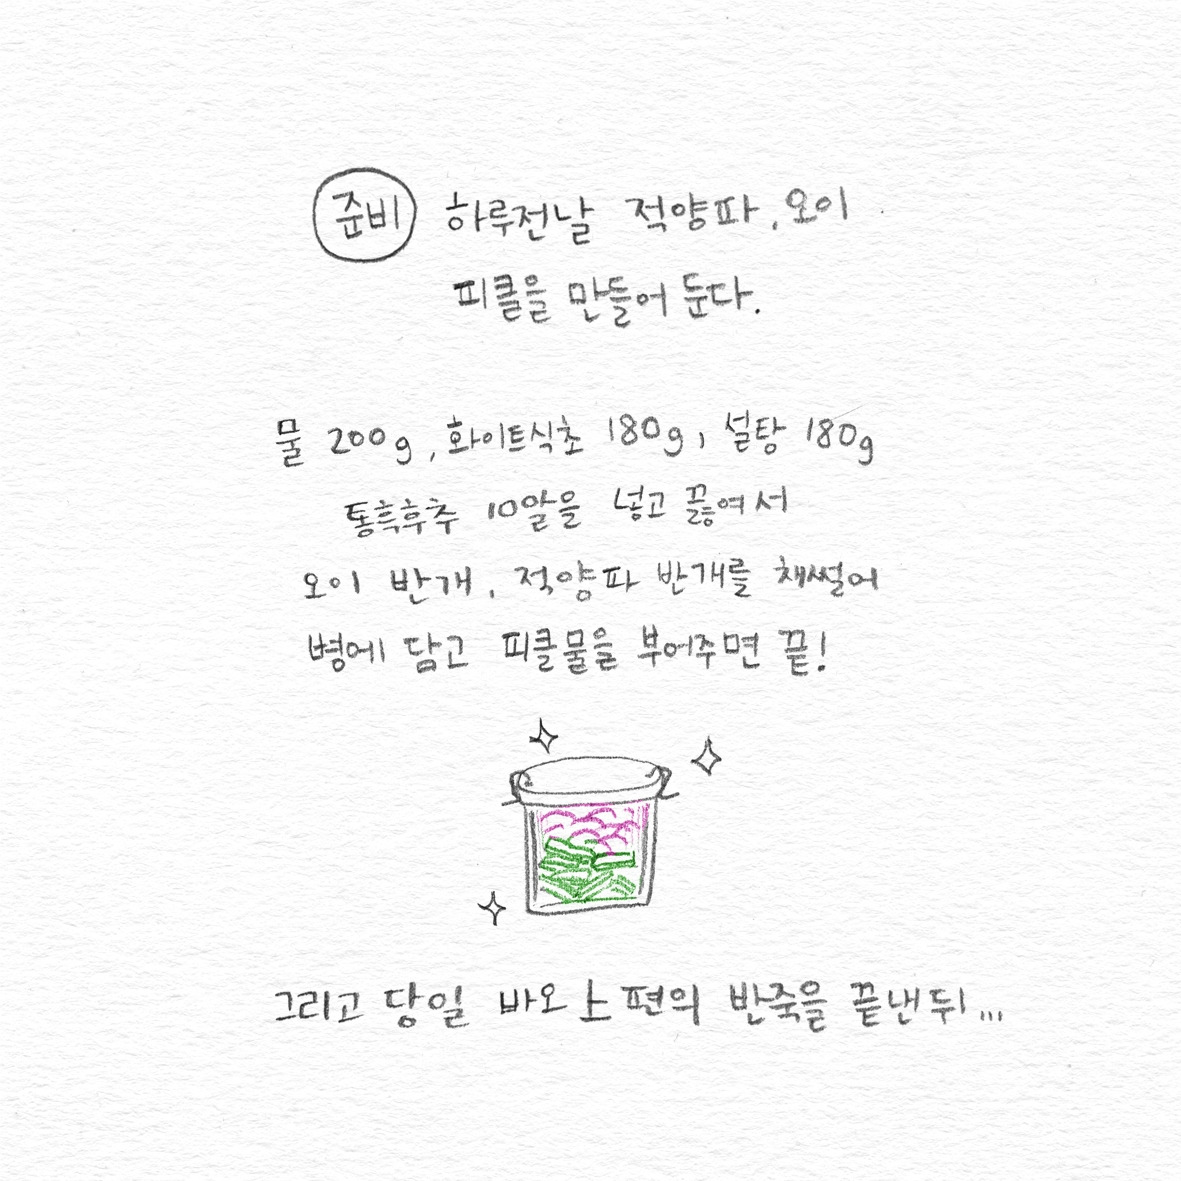 준비 하루전날 적양파, 오이
피클을 만들어 둔다.
물 200g, 화이트식초 180g, 설탕 180g
통흑후추 10알을 넣고 끓여서
오이 반개, 적양파 반개를 채썰어
병에 담고 피클물을 부어주면 끝!
그리고 당일 바오 上편의 반죽을 끝낸뒤...